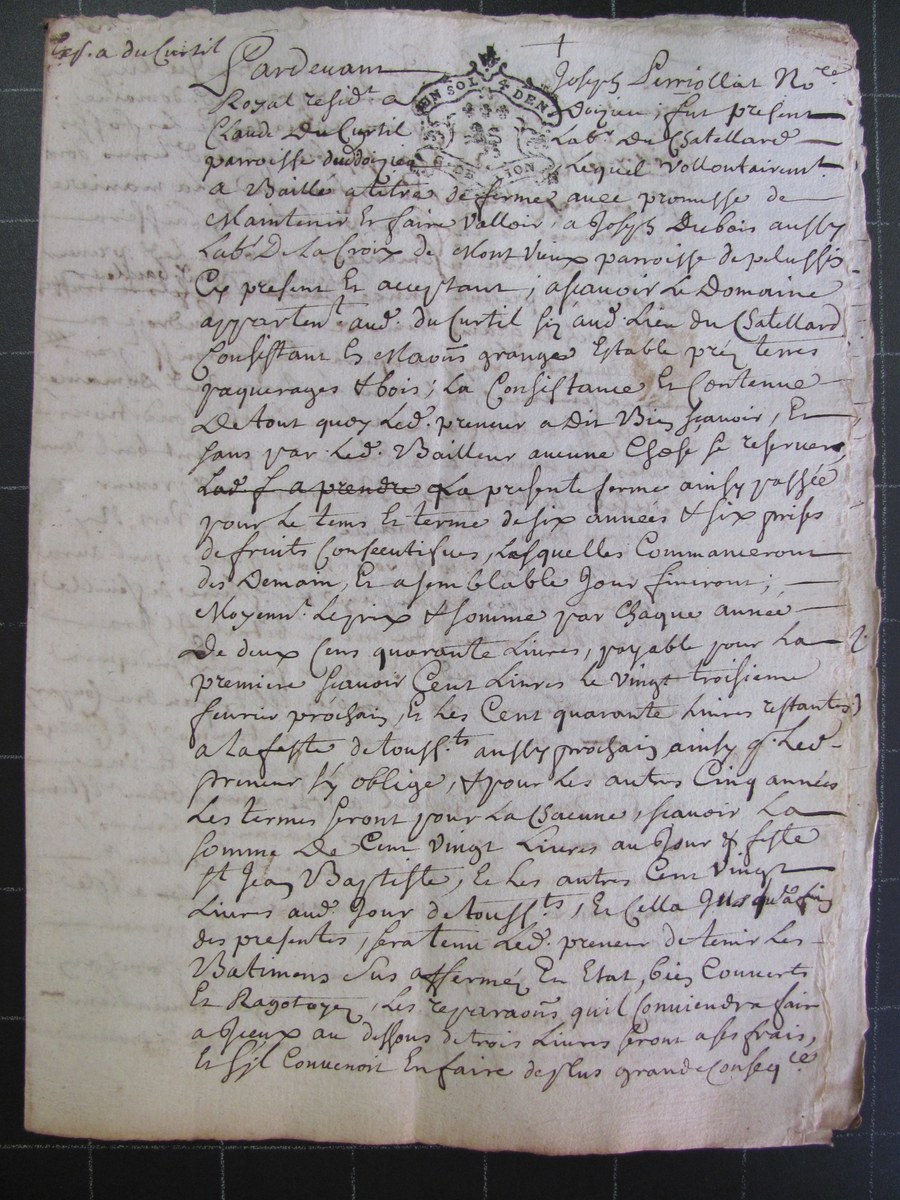 Exp. a du Curtil
Pardevant Joseph Perriollat No.re
Royal resid.t a Doizieu, fut present
UN SOL 4 DEN.
Claude Du Curtil Lab.r Du Chatellard
DE LION
parroisse dud doizieu Lequel vollontairemt.
a Baillé a titre de ferme avec promesse de
Maintenir Et faire valloir, a Joseph Dubois aussy
Lab.r De la Croix de Mont Vieux parroisse de pelussin
Cy present Et acceptant; ascavoir Le Domaine
appartent. aud. du Curtil sis aud. Lieu du Chatellard
Consistant En Maōns grange Estable préz terres
paquerages & bois; La Consistance Et Contenue
De tout quoy Led. preneur a Dit Bien scavoir, Et
sans par Led. Bailleur aucune Chose se reserver,
Lad. f a prendre La presente ferme ainsy passée
pour Le tems Et terme de six années & six prises
de fruits Consecutifves, Lesquelles Commanceront
des Demain, Et a semblable Jour finiront;
Moyenn.t Le prix & somme par Chaque année
De deux Cens quarante Livres, payable pour La
premiere scavoir Cent Livres Le vingt troisieme
fevrier prochain, Et Les Cent quarante Livres restantes
a la feste de touss.ts aussy prochain ainsy q. Led.
preneur s'y oblige, & pour Les autres Cinq années
Les termes seront pour La Chacune, scavoir La
somme De Cent vingt Livres au Jour & feste
st Jean Baptiste, Et Les autres Cent Vingt
Livres aud. Jour de touss.ts, Et Cella Jusqu'a fin
des presentes, sera tenu Led. preneur de tenir Les
Batimens sus affermés En Etat, bien Couverts
Et Ragotoyer, Les reparaōns qu'il Conviendra fair
a Iceux au dessous de trois Livres seront a ses frais,
Et s'jl Convenoit En faire de plus grande Conseq.ce